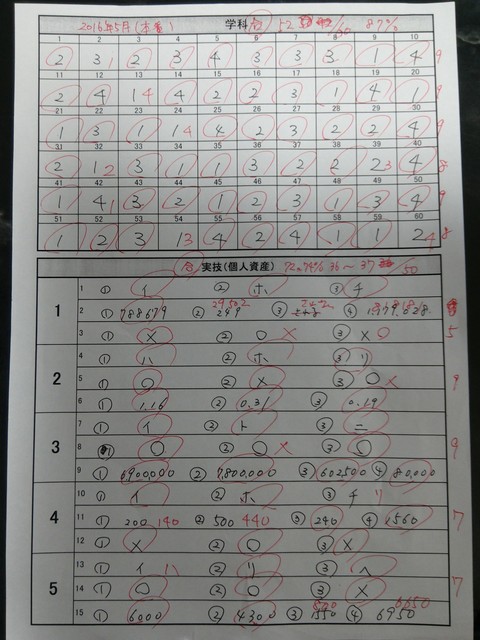 2016年5月(本番) 学科 合 52 /60 87%
1 2 3 4 5 6 7 8 9 10
2 3 2 3 4 3 3 3 1 4 9
11 12 13 14 15 16 17 18 19 20
2 4 1 4 4 2 2 3 1 4 1 9
21 22 23 24 25 26 27 28 29 30
1 3 1 1 4 4 2 3 2 2 4 9
31 32 33 34 35 36 37 38 39 40
2 1 2 3 1 1 3 2 2 3 4 8
41 42 43 44 45 46 47 48 49 50
1 4 1 3 2 1 2 3 1 3 4 9
51 52 53 54 55 56 57 58 59 60
1 2 3 1 3 4 2 4 1 1 2 4 8
合 実技(個人資産) 72~74% 36~37 /50
1
1 ① イ ② ホ ③ チ
2 ① 788679 ② 249 ③ ④
3 ① × ② ○ × ③ × ○ 5
2
4 ① ハ ② ホ ③ リ
5 ① ○ ② × ③ ○ × 9
6 ① 1.16 ② 0.31 ③ 0.19
3
7 ① イ ② ト ③ ニ
8 ① ○ ② ○ × ③ ○ 9
9 ① 6900,000 ② 7800,000 ③ 602500 ④ 80,000
4
10 ① イ ② ホ ③ チ リ
11 ① 200 140 ② 500 440 ③ 240 ④ 1560 7
12 ① × ② ○ ③ ×
5
13 ① イ ハ ② リ ③ ヘ
14 ① ○ ② ○ ③ × 7
15 ① 6000 ② 4300 ③ 1550 ④ 6950 6650